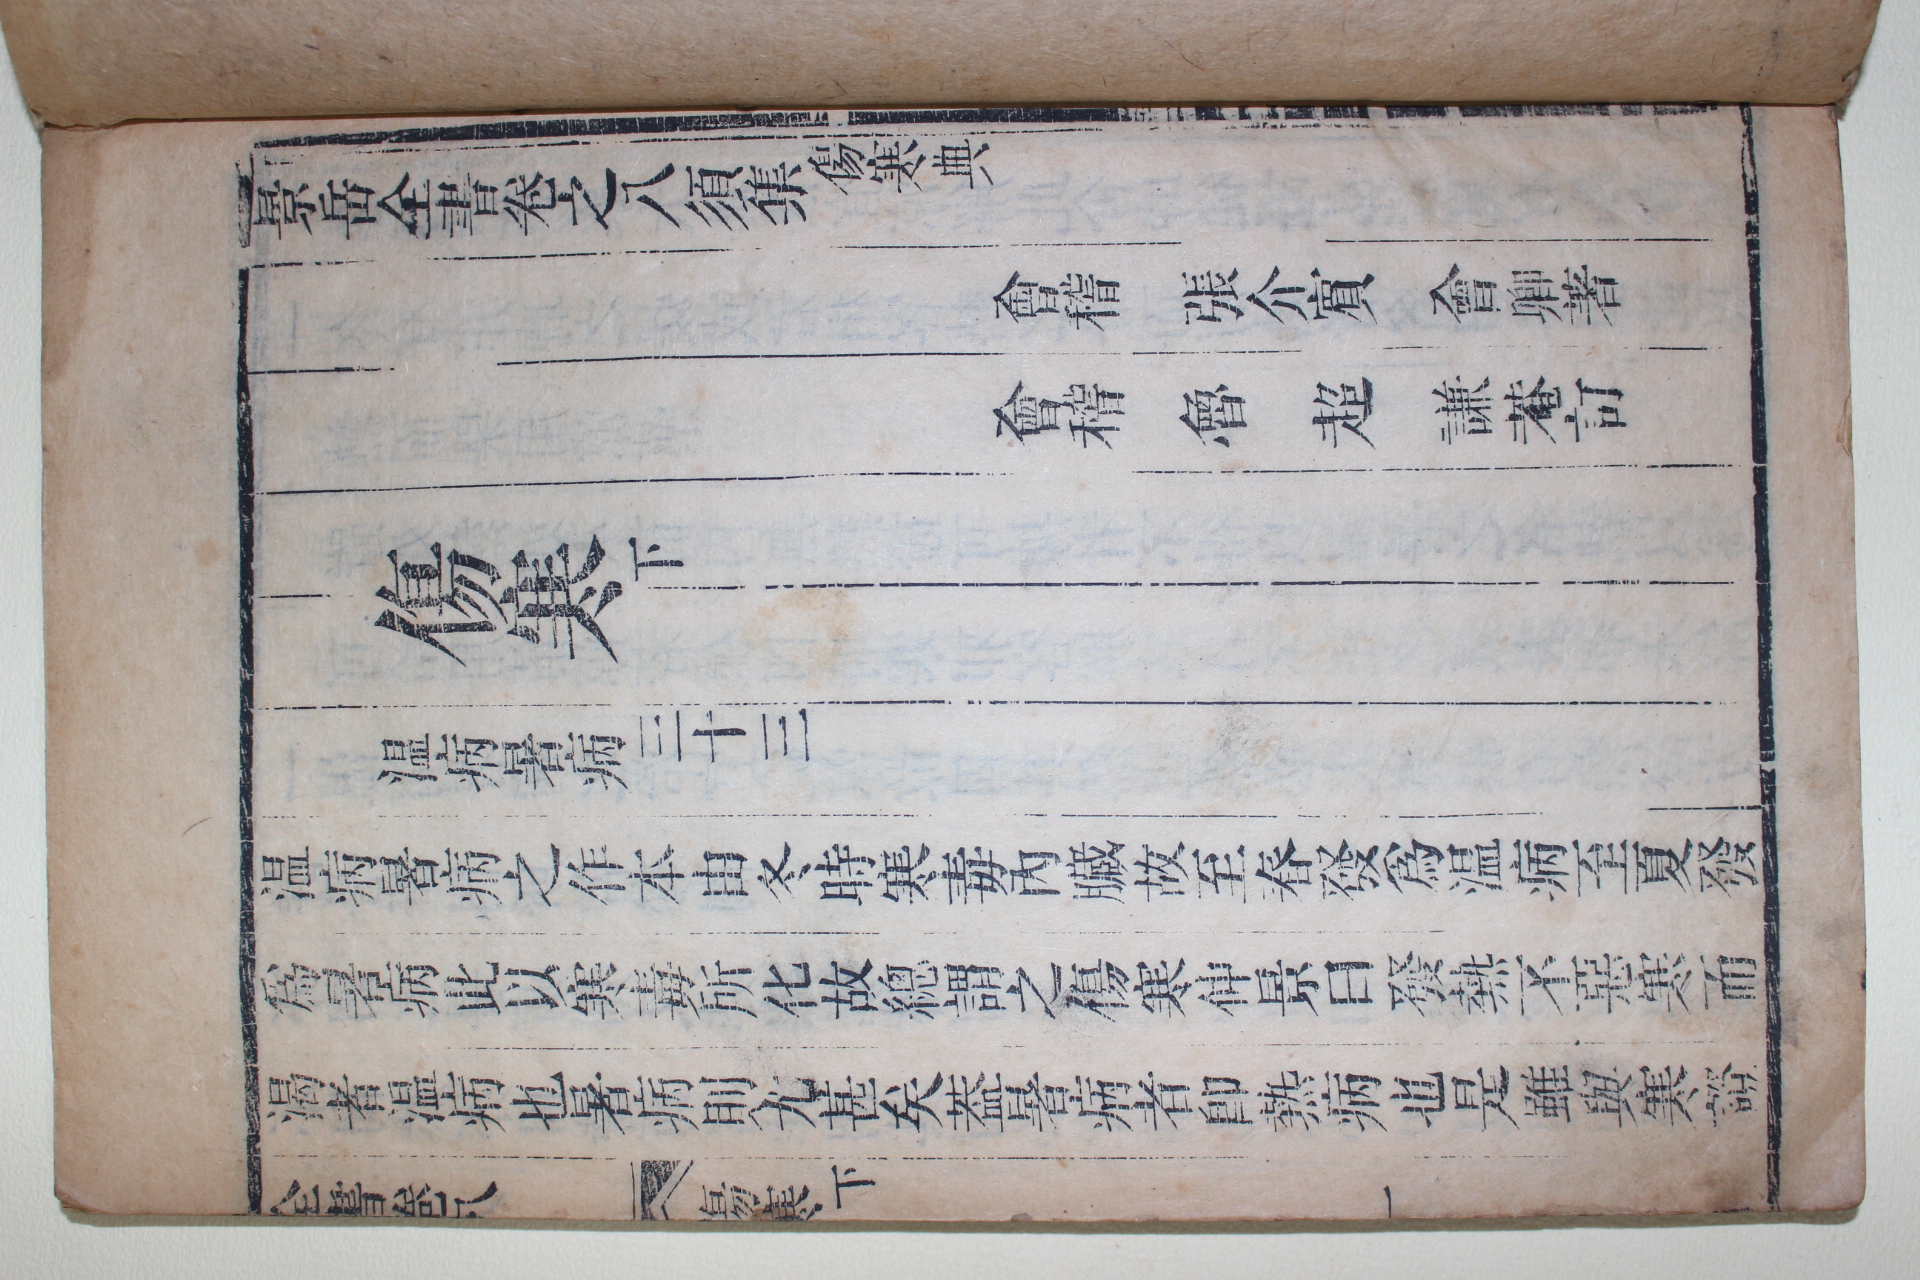 景岳全書卷之八須集 傷寒典
會稽 張介賓 會卿著
會稽 魯 超 謙菴訂
傷寒下
溫病暑病 三十三
溫病暑病之作本由冬時寒毒內臟故至春發爲溫病至夏發
爲暑病此以寒毒所化故總謂之傷寒仲景曰發熱不惡寒而
渴者溫病也暑病則尤甚矣葢暑病者卽熱病也是雖與寒證
全書卷八 傷寒下 一